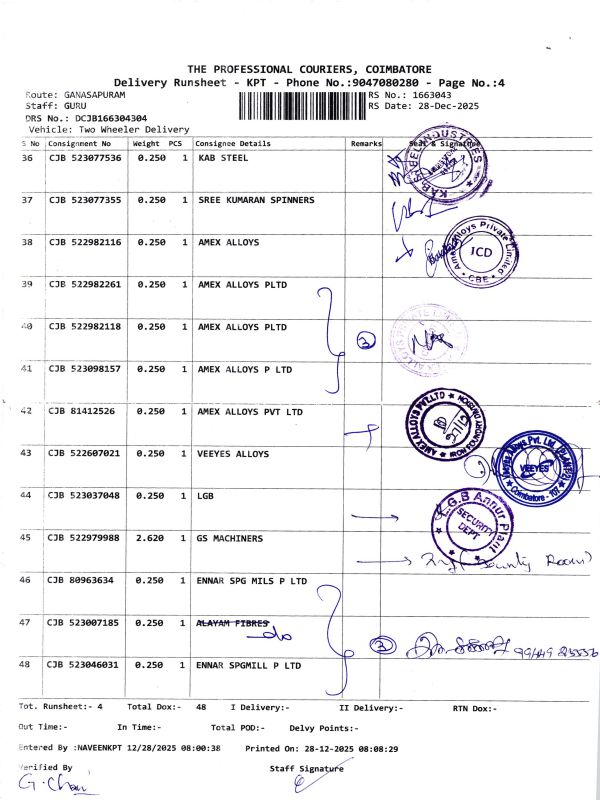 THE PROFESSIONAL COURIERS, COIMBATORE
Delivery Runsheet - KPT - Phone No.:9047080280 - Page No.:4
Route: GANASAPURAM RS No.: 1663043
Staff: GURU RS Date: 28-Dec-2025
DRS No.: DCJB166304304
Vehicle: Two Wheeler Delivery
S No Consignment No Weight PCS Consignee Details Remarks Seal & Signature
36 CJB 523077536 0.250 1 KAB STEEL
37 CJB 523077355 0.250 1 SREE KUMARAN SPINNERS
38 CJB 522982116 0.250 1 AMEX ALLOYS
Amex Alloys Private Limited
JCD
CBE
39 CJB 522982261 0.250 1 AMEX ALLOYS PLTD
40 CJB 522982118 0.250 1 AMEX ALLOYS PLTD
3
41 CJB 523098157 0.250 1 AMEX ALLOYS P LTD
42 CJB 81412526 0.250 1 AMEX ALLOYS PVT LTD
AMEX ALLOYS PVT LTD
IRON FOUNDRY DIVISION
43 CJB 522607021 0.250 1 VEEYES ALLOYS
VEEYES
Coimbatore - 107
44 CJB 523037048 0.250 1 LGB
L.G.B Annur Plant
SECURITY
DEPT
45 CJB 522979988 2.620 1 GS MACHINERS
Room)
46 CJB 80963634 0.250 1 ENNAR SPG MILS P LTD
47 CJB 523007185 0.250 1 ALAYAM FIBRES
do
3
48 CJB 523046031 0.250 1 ENNAR SPGMILL P LTD
Tot. Runsheet:- 4 Total Dox:- 48 I Delivery:- II Delivery:- RTN Dox:-
Out Time:- In Time:- Total POD:- Delvy Points:-
Entered By :NAVEENKPT 12/28/2025 08:00:38 Printed On: 28-12-2025 08:08:29
Verified By Staff Signature